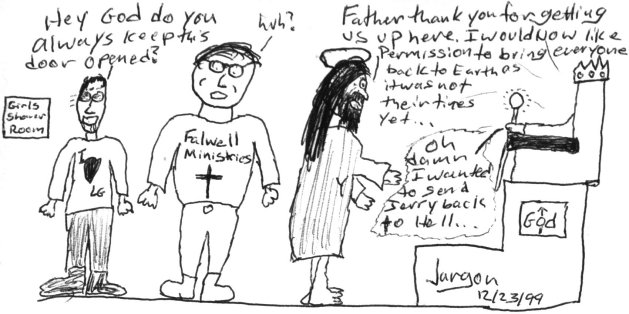 Hey God do you
always keep this
door opened?
huh?
Father thank you for getting
us up here. I would now like
Permission to bring everyone
back to Earth as
it was not
their times
yet...
Oh
damn
I wanted
to send
Jerry back
to Hell...
Girls
Shower
Room
I
LG
Falwell
Ministries
God
Jargon
12/23/99